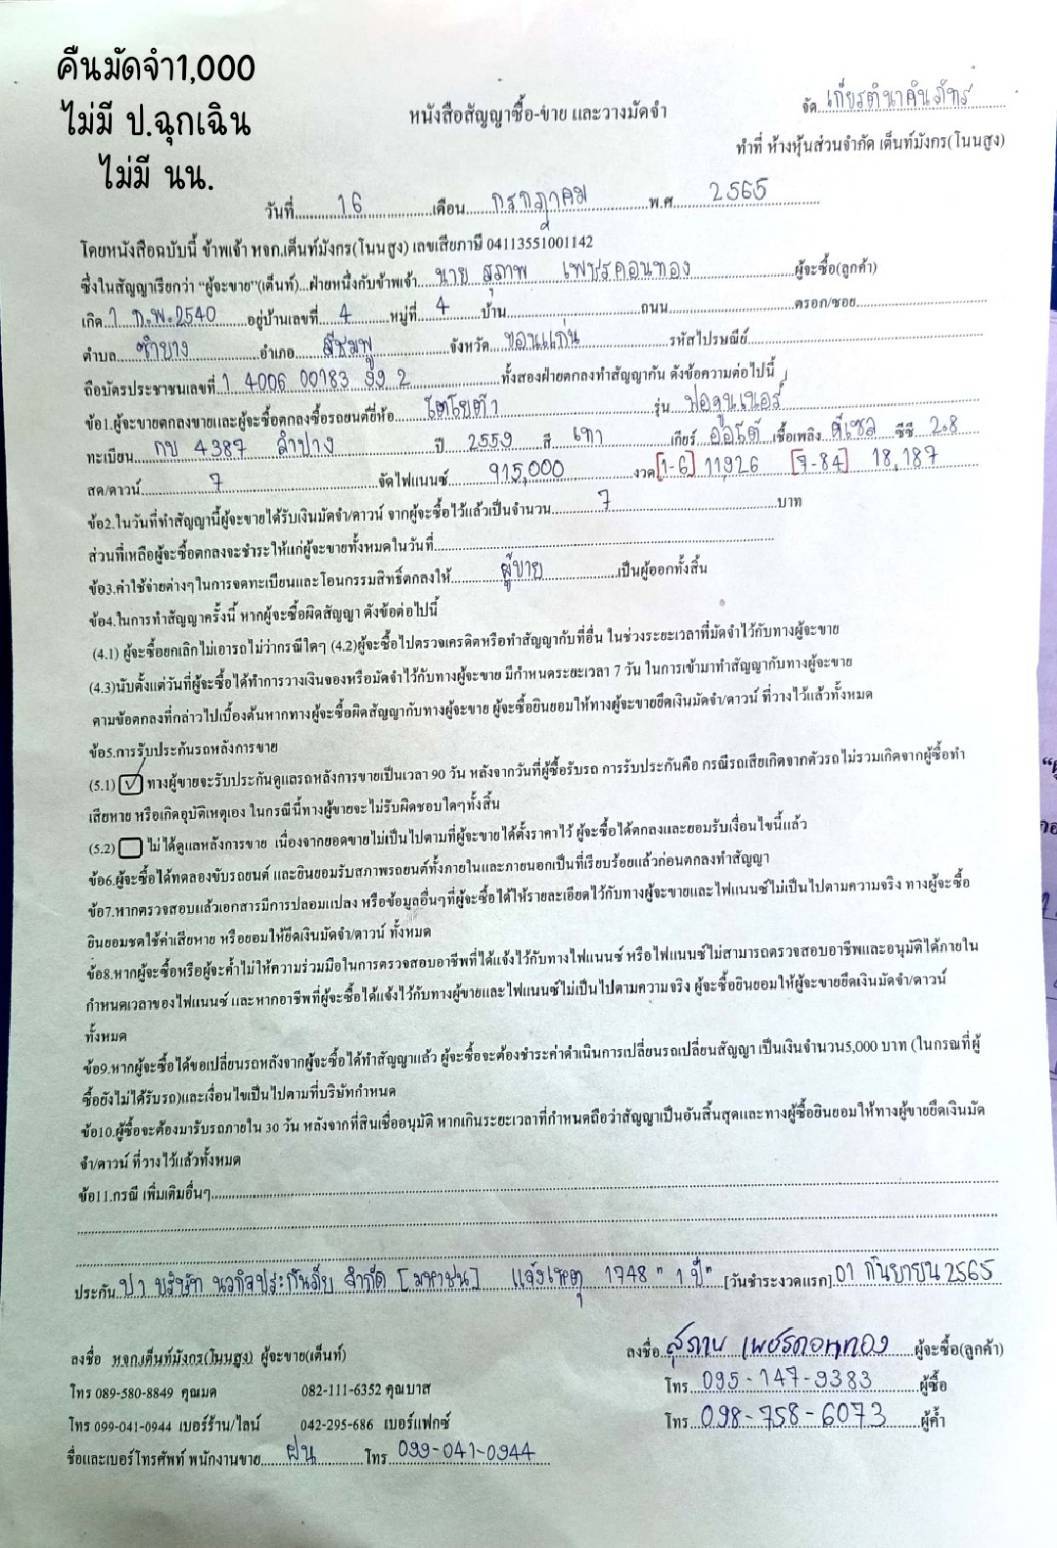 คืนมัดจำ1,000
ไม่มี ป.ฉุกเฉิน
ไม่มี นน.
จัด เกียรตินาคินภัทร
หนังสือสัญญาซื้อ-ขาย และวางมัดจำ
ทำที่ ห้างหุ้นส่วนจำกัด เต็นท์มังกร(โนนสูง)
วันที่ 16 เดือน กรกฎาคม พ.ศ. 2565
โดยหนังสือฉบับนี้ ข้าพเจ้า หจก.เต็นท์มังกร(โนนสูง) เลขเสียภาษี 04113551001142
ซึ่งในสัญญาเรียกว่า "ผู้จะขาย"(เต็นท์)...ฝ่ายหนึ่งกับข้าพเจ้า นาย สุภาพ เพชรดอนทอง ผู้จะซื้อ(ลูกค้า)
เกิด 1 ก.พ. 2540 อยู่บ้านเลขที่ 4 หมู่ที่ 4 บ้าน ถนน ตรอก/ซอย
ตำบล ซำยาง อำเภอ สีชมพู จังหวัด ขอนแก่น รหัสไปรษณีย์
ถือบัตรประชาชนเลขที่ 1 4006 00183 99 2 ทั้งสองฝ่ายตกลงทำสัญญากัน ดังข้อความต่อไปนี้
ข้อ1.ผู้จะขายตกลงขายและผู้จะซื้อตกลงซื้อรถยนต์ยี่ห้อ โตโยต้า รุ่น ฟอจูนเนอร์
ทะเบียน กข 4387 ลำปาง ปี 2559 สี เทา เกียร์ ออโต้ เชื้อเพลิง ดีเซล ซีซี 2.8
สด/ดาวน์ 7 จัดไฟแนนซ์ 915,000 งวด [1-6] 11926 [7-84] 18,187
ข้อ2.ในวันที่ทำสัญญานี้ผู้จะขายได้รับเงินมัดจำ/ดาวน์ จากผู้จะซื้อไว้แล้วเป็นจำนวน 7 บาท
ส่วนที่เหลือผู้จะซื้อตกลงจะชำระให้แก่ผู้จะขายทั้งหมดในวันที่
ข้อ3.ค่าใช้จ่ายต่างๆในการจดทะเบียนและโอนกรรมสิทธิ์ตกลงให้ ผู้ขาย เป็นผู้ออกทั้งสิ้น
ข้อ4.ในการทำสัญญาครั้งนี้ หากผู้จะซื้อผิดสัญญา ดังข้อต่อไปนี้
(4.1) ผู้จะซื้อยกเลิกไม่เอารถไม่ว่ากรณีใดๆ (4.2)ผู้จะซื้อไปตรวจเครดิตหรือทำสัญญากับที่อื่น ในช่วงระยะเวลาที่มัดจำไว้กับทางผู้จะขาย
(4.3)นับตั้งแต่วันที่ผู้จะซื้อได้ทำการวางเงินจองหรือมัดจำไว้กับทางผู้จะขาย มีกำหนดระยะเวลา 7 วัน ในการเข้ามาทำสัญญากับทางผู้จะขาย
ตามข้อตกลงที่กล่าวไปเบื้องต้นหากทางผู้จะซื้อผิดสัญญากับทางผู้จะขาย ผู้จะซื้อยินยอมให้ทางผู้จะขายยึดเงินมัดจำ/ดาวน์ ที่วางไว้แล้วทั้งหมด
ข้อ5.การรับประกันรถหลังการขาย
(5.1) ทางผู้ขายจะรับประกันดูแลรถหลังการขายเป็นเวลา 90 วัน หลังจากวันที่ผู้ซื้อรับรถ การรับประกันคือ กรณีรถเสียเกิดจากตัวรถ ไม่รวมเกิดจากผู้ซื้อทำ
เสียหาย หรือเกิดอุบัติเหตุเอง ในกรณีนี้ทางผู้ขายจะไม่รับผิดชอบใดๆทั้งสิ้น
(5.2) ไม่ได้ดูแลหลังการขาย เนื่องจากยอดขายไม่เป็นไปตามที่ผู้จะขายได้ตั้งราคาไว้ ผู้จะซื้อได้ตกลงและยอมรับเงื่อนไขนี้แล้ว
ข้อ6.ผู้จะซื้อได้ทดลองขับรถยนต์ และยินยอมรับสภาพรถยนต์ทั้งภายในและภายนอกเป็นที่เรียบร้อยแล้วก่อนตกลงทำสัญญา
ข้อ7.หากตรวจสอบแล้วเอกสารมีการปลอมแปลง หรือข้อมูลอื่นๆที่ผู้จะซื้อได้ให้รายละเอียดไว้กับทางผู้จะขายและไฟแนนซ์ไม่เป็นไปตามความจริง ทางผู้จะซื้อ
ยินยอมชดใช้ค่าเสียหาย หรือยอมให้ยึดเงินมัดจำ/ดาวน์ ทั้งหมด
ข้อ8.หากผู้จะซื้อหรือผู้จะค้ำไม่ให้ความร่วมมือในการตรวจสอบอาชีพที่ได้แจ้งไว้กับทางไฟแนนซ์ หรือไฟแนนซ์ไม่สามารถตรวจสอบอาชีพและอนุมัติได้ภายใน
กำหนดเวลาของไฟแนนซ์ และหากอาชีพที่ผู้จะซื้อได้แจ้งไว้กับทางผู้ขายและไฟแนนซ์ไม่เป็นไปตามความจริง ผู้จะซื้อยินยอมให้ผู้จะขายยึดเงินมัดจำ/ดาวน์
ทั้งหมด
ข้อ9.หากผู้จะซื้อได้ขอเปลี่ยนรถหลังจากผู้จะซื้อได้ทำสัญญาแล้ว ผู้จะซื้อจะต้องชำระค่าดำเนินการเปลี่ยนรถเปลี่ยนสัญญา เป็นเงินจำนวน5,000 บาท (ในกรณีที่ผู้
ซื้อยังไม่ได้รับรถ)และเงื่อนไขเป็นไปตามที่บริษัทกำหนด
ข้อ10.ผู้ซื้อจะต้องมารับรถภายใน 30 วัน หลังจากที่สินเชื่ออนุมัติ หากเกินระยะเวลาที่กำหนดถือว่าสัญญาเป็นอันสิ้นสุดและทางผู้ซื้อยินยอมให้ทางผู้ขายยึดเงินมัด
จำ/ดาวน์ ที่วางไว้แล้วทั้งหมด
ข้อ11.กรณี เพิ่มเติมอื่นๆ
ประกัน ป1 บริษัท นวกิจประกันภัย จำกัด [มหาชน] แจ้งเหตุ 1748 "1 ปี" [วันชำระงวดแรก] 01 กันยายน 2565
ลงชื่อ หจก.เต็นท์มังกร(โนนสูง) ผู้จะขาย(เต็นท์)
ลงชื่อ สุภาพ เพชรดอนทอง ผู้จะซื้อ(ลูกค้า)
โทร 089-580-8849 คุณมด 082-111-6352 คุณบาส
โทร 095-147-9383 ผู้ซื้อ
โทร 099-041-0944 เบอร์ร้าน/ไลน์ 042-295-686 เบอร์แฟกซ์
โทร 098-758-6073 ผู้ค้ำ
ชื่อและเบอร์โทรศัพท์ พนักงานขาย ฝน โทร 099-041-0944